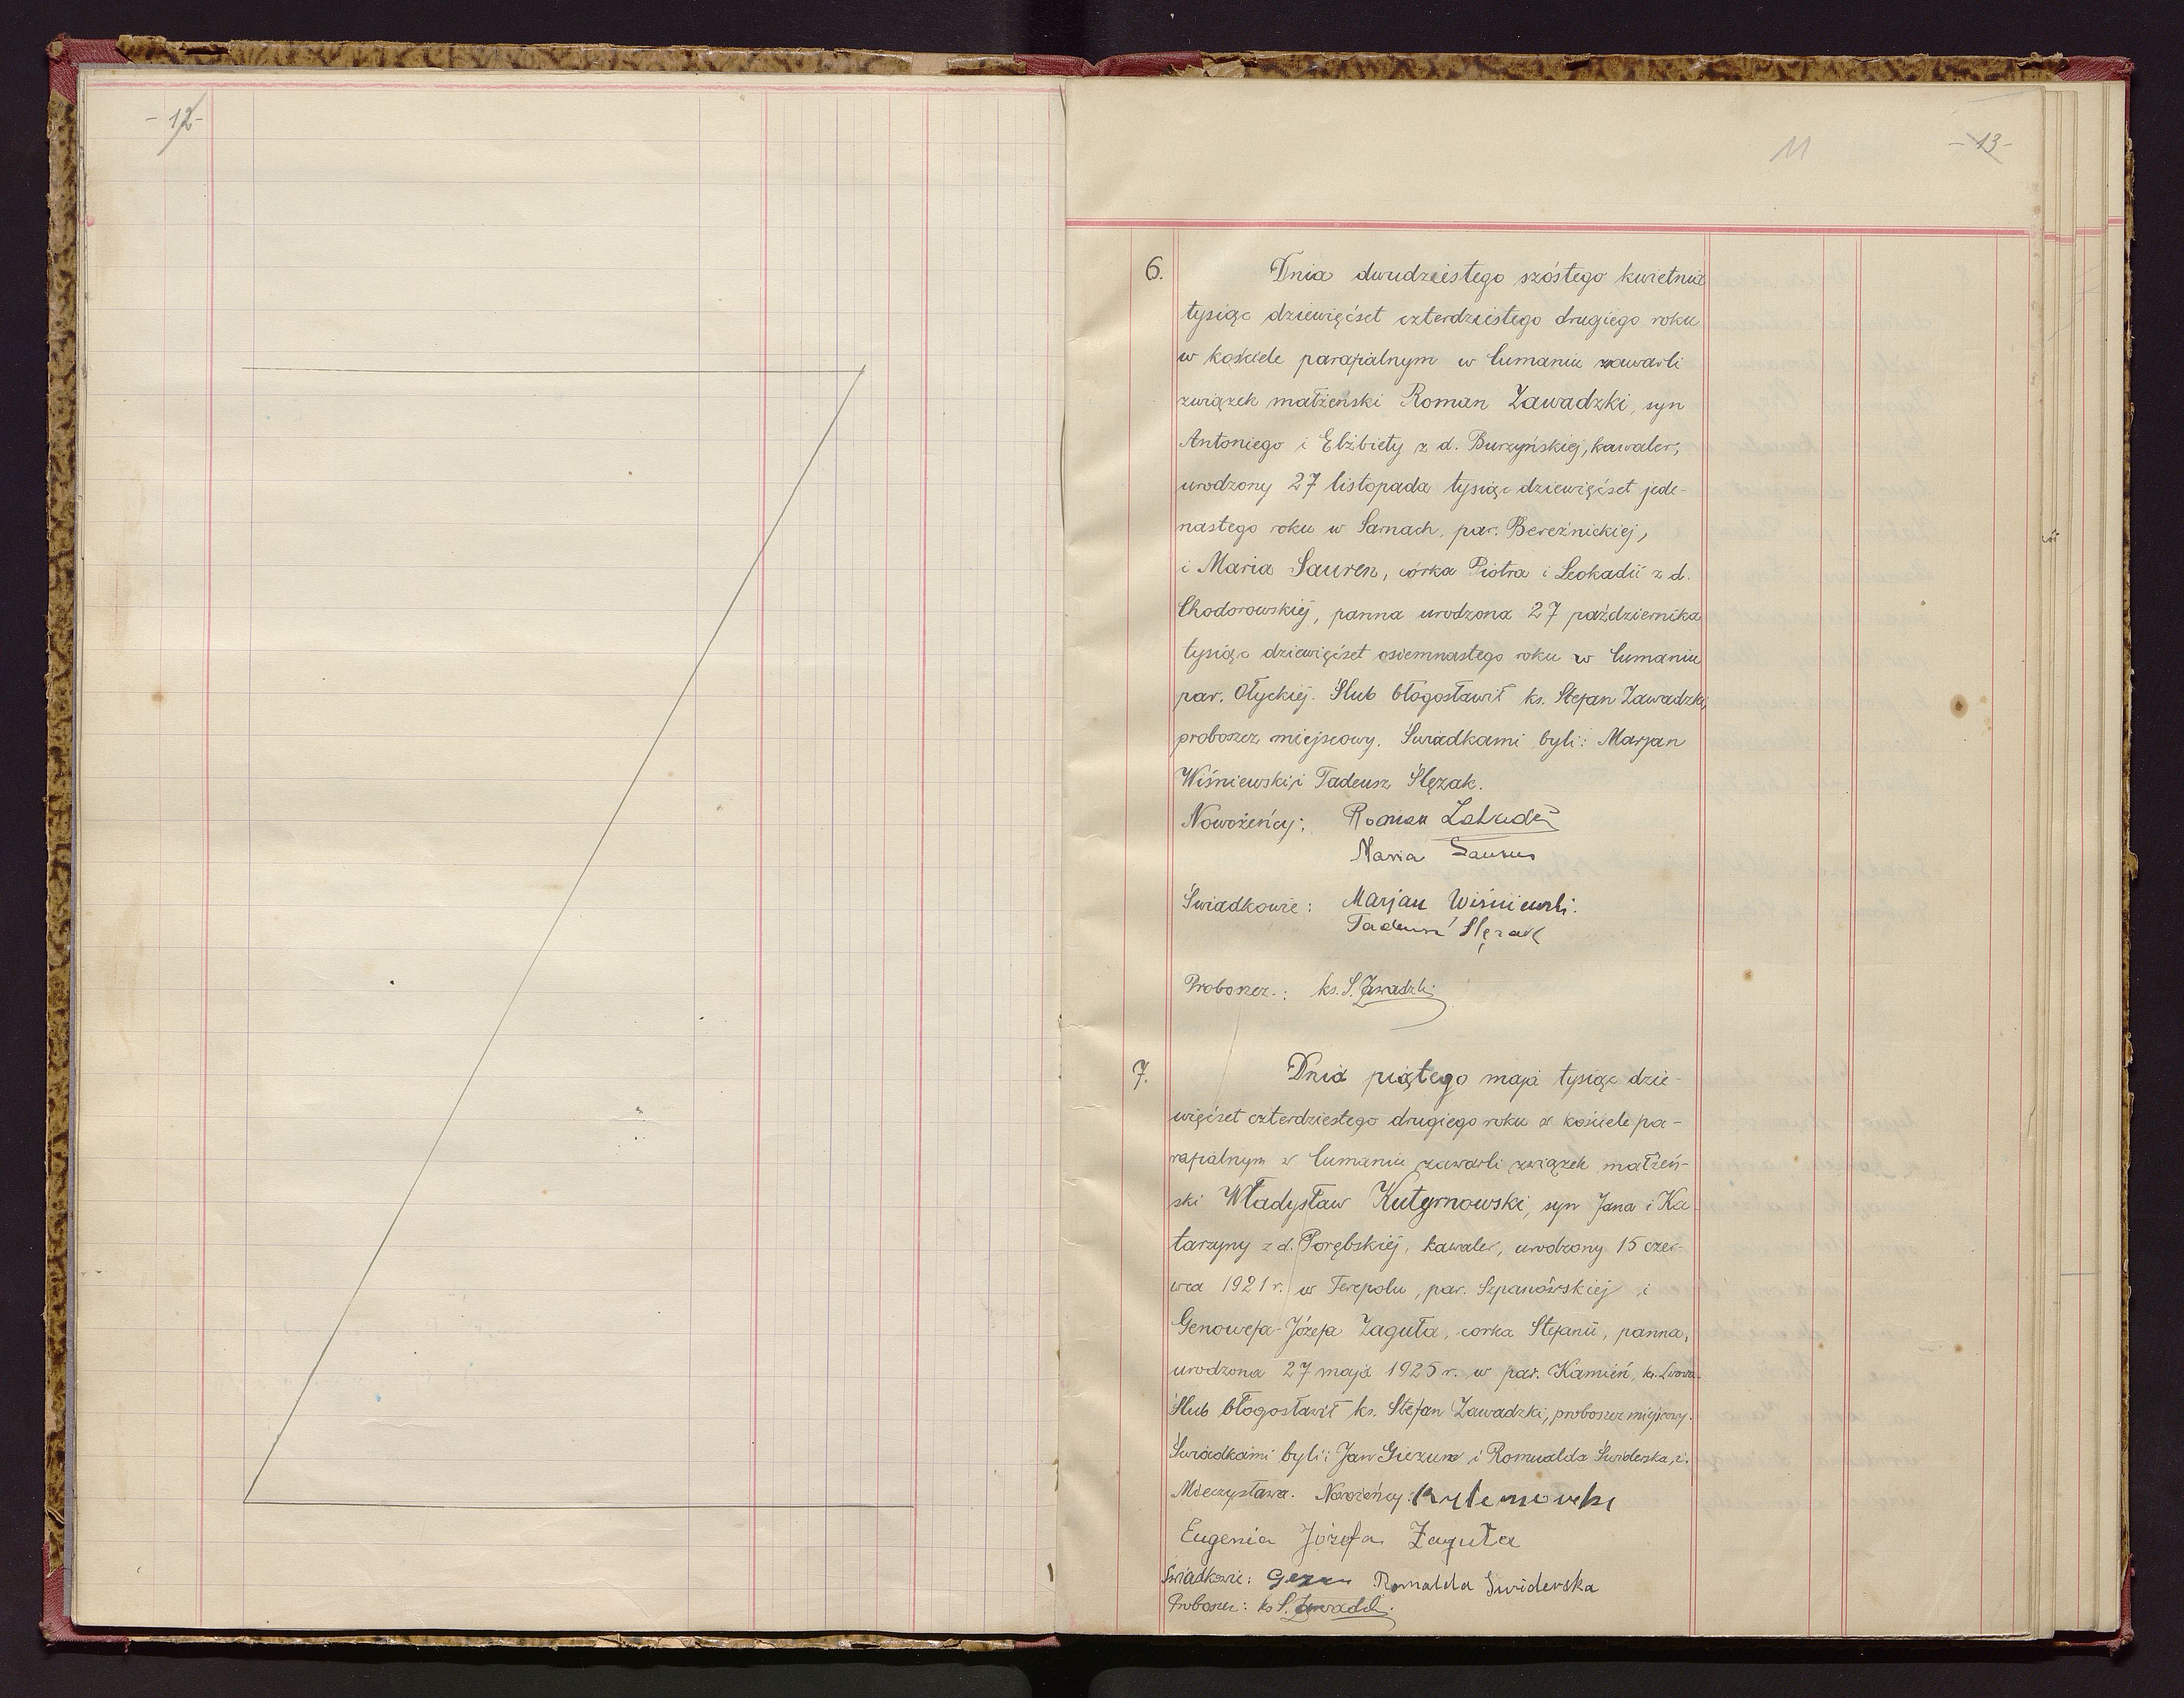 - 12 -
11
- 13 -
6.
Dnia dwudziestego szóstego kwietnia
tysiąc dziewięćset czterdziestego drugiego roku
w kościele parafialnym w Cumaniu zawarli
związek małżeński Roman Zawadzki, syn
Antoniego i Elżbiety z d. Burzyńskiej, kawaler,
urodzony 27 listopada tysiąc dziewięćset jede-
nastego roku w Sarnach, par. Bereźnickiej,
i Maria Sauren, córka Piotra i Leokadii z d.
Chodorowskiej, panna urodzona 27 października
tysiąc dziewięćset osiemnastego roku w Cumaniu
par. Ołyckiej. Ślub błogosławił ks. Stefan Zawadzki,
proboszcz miejscowy. Świadkami byli: Marjan
Wiśniewski i Tadeusz Ślęzak.
Nowożeńcy: Roman
Maria
Świadkowie: Marjan Wiśniewski.
Tadeusz Ślęzak
Proboszcz.: ks. S. Zawadzki
7.
Dnia piątego maja tysiąc dzie-
więćset czterdziestego drugiego roku w kościele pa-
rafialnym w Cumaniu zawarli związek małżeń-
ski Władysław Kutyrnowski, syn Jana i Ka
tarzyny z d. Porębskiej, kawaler, urodzony 15 czer-
wca 1921 r. w Terepolu, par. Szpanowskiej i
Genowefa-Józefa Zaguła, corka Stefanii, panna,
urodzona 27 maja 1925 r. w par. Kamień,
Ślub błogosławił ks. Stefan Zawadzki, proboszcz miejscowy.
Świadkami byli: Jan i Romualda Świderska, c.
Mieczysława. Nowożeńcy:
Eugenia Józefa Zaguła
Świadkowie: Romualda Świderska
Proboszcz: ks S. Zawadzki.